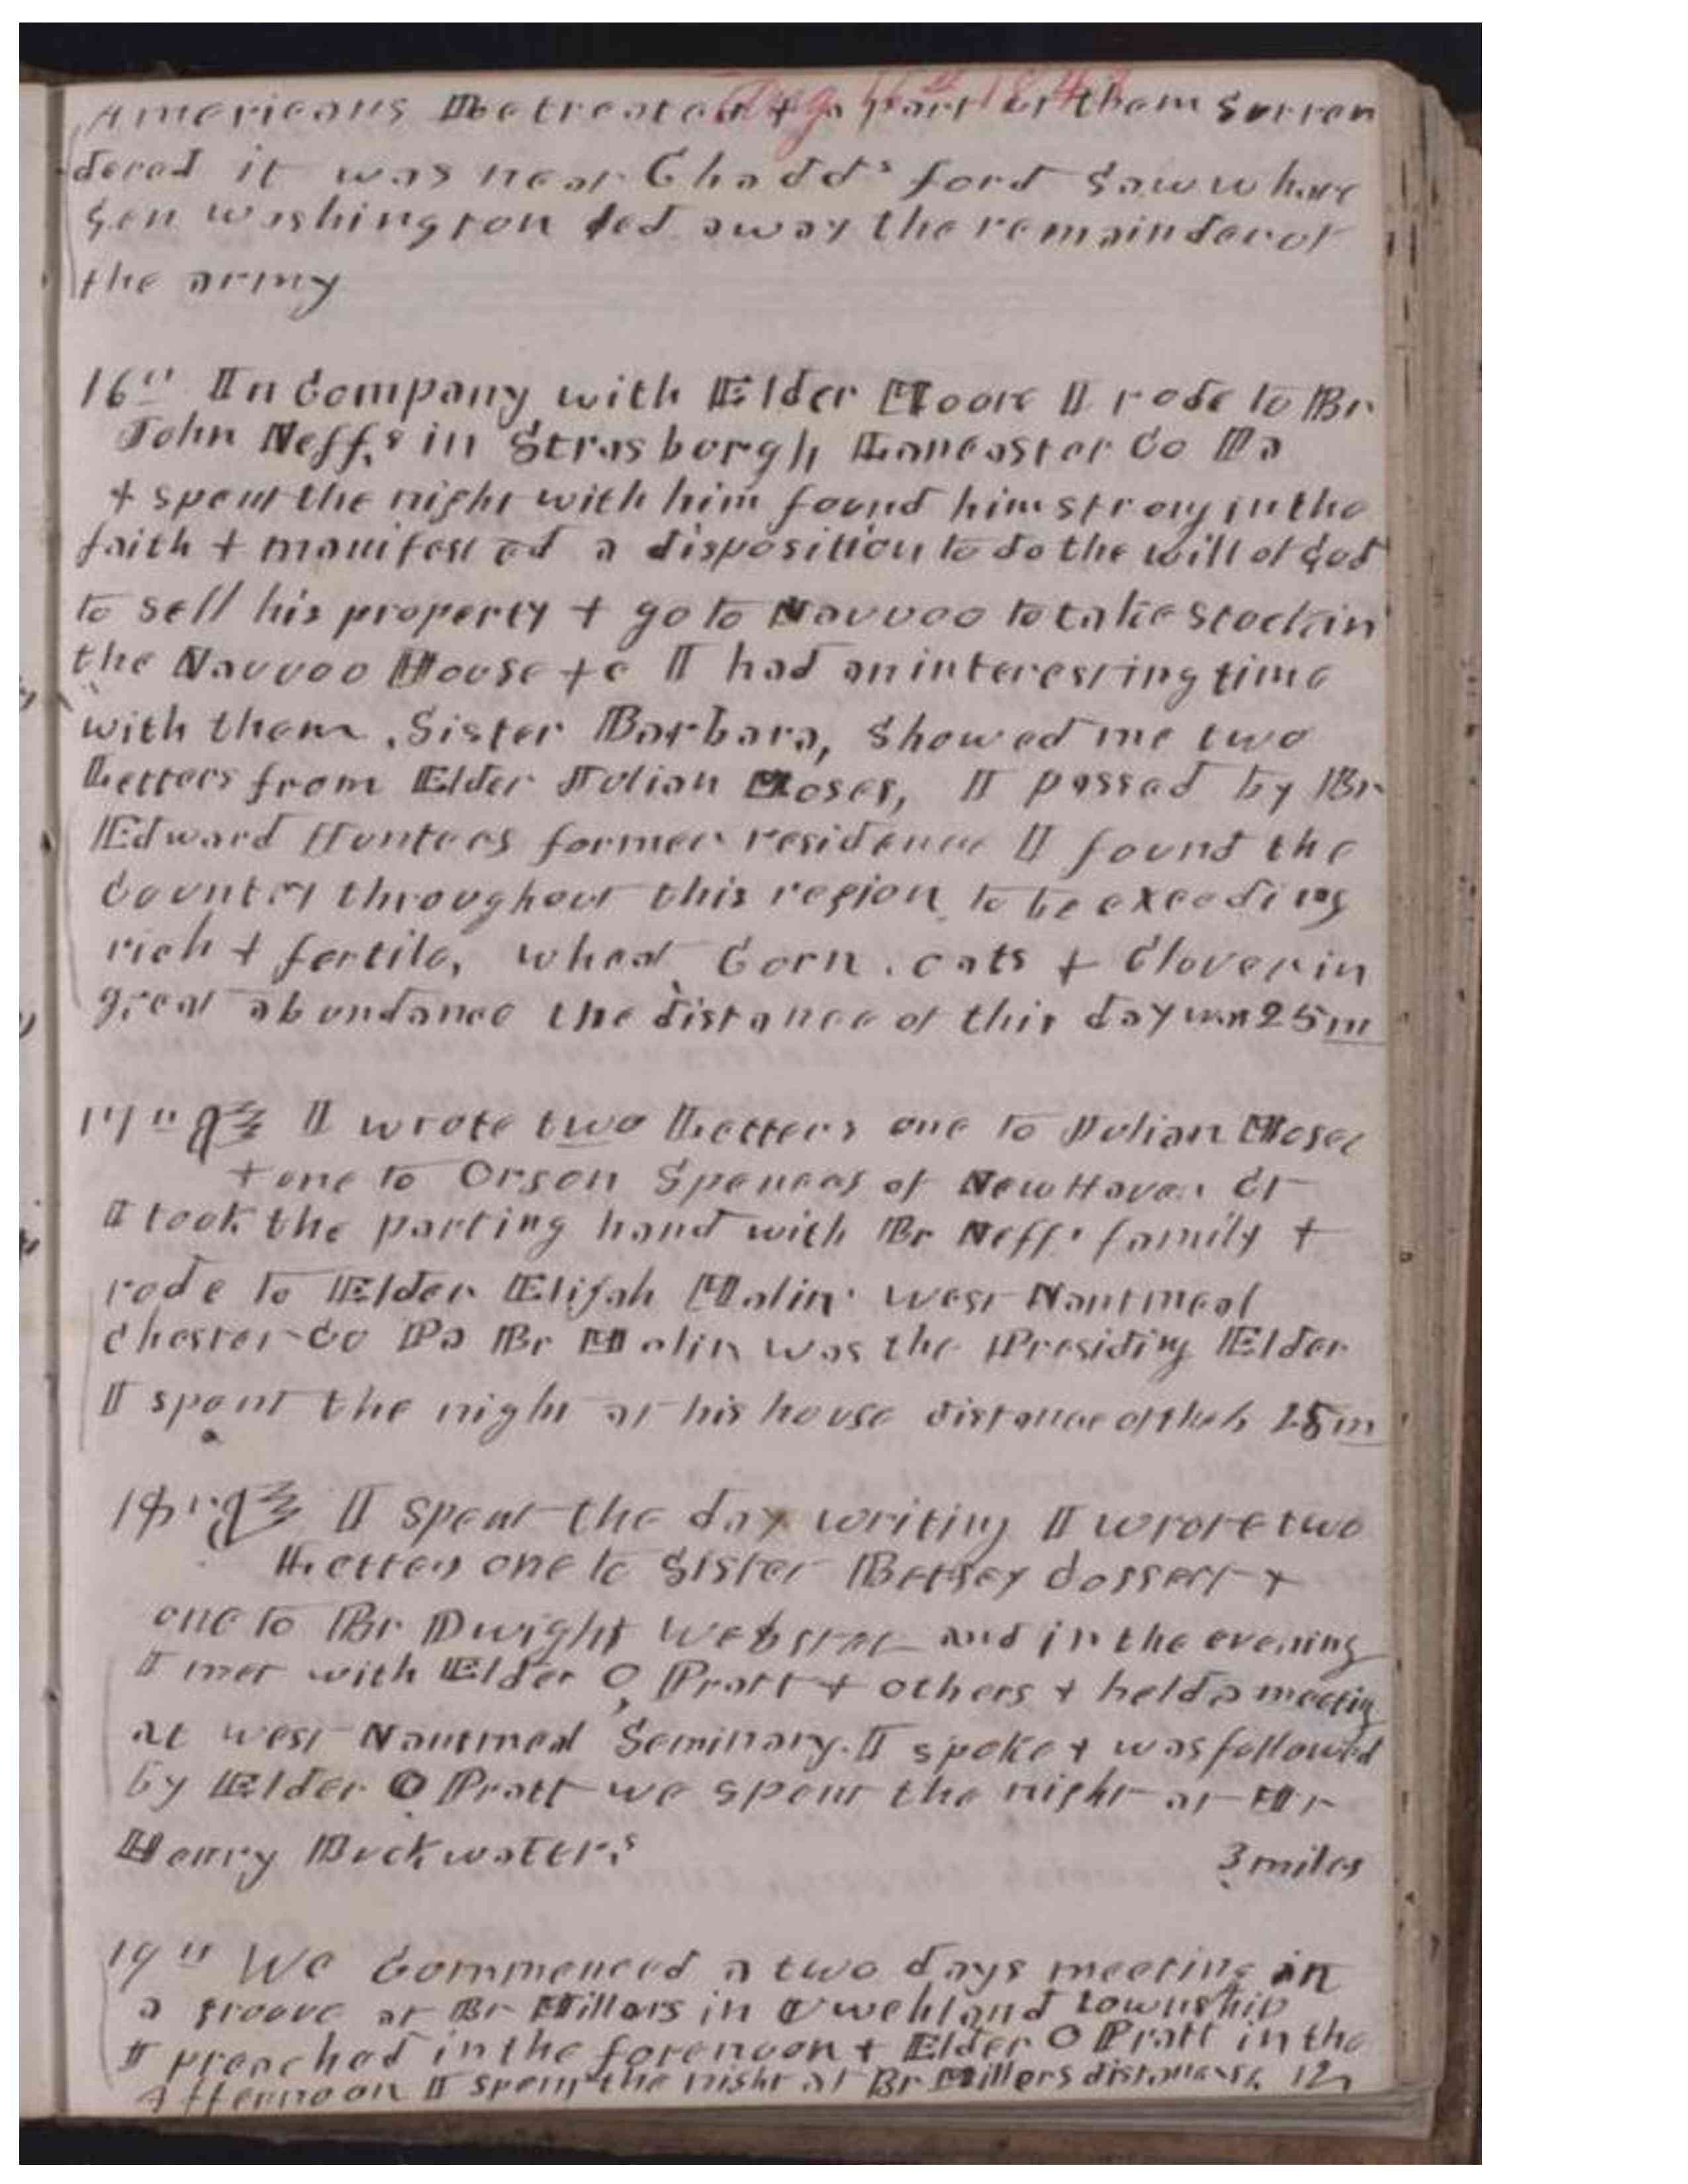 Aug 16th 1843
Americans Retreated & a part of them Surren
dered it was near Chadds ford Saw whare
Gen Washington led away the remainder of
the army
16th In Company with Elder Moore I rode to Br
John Neff,s in Strasburgh Lancaster Co Pa
& spent the night with him found him strong in the
faith & manifested a disposition to do the will of God
to sell his property & go to Nauvoo to take Stock in
the Nauvoo House &c I had an interesting time
with them, Sister Barbara, Showed me two
Letters from Elder Julian Moses, I passed by Br
Edward Hunters former residence I found the
Country throughout this region to be exceeding
rich & fertile, wheat Corn, oats & Clover in
great abundance the distance of this day was 25 m
17th I wrote two Letters one to Julian Moses
& one to Orson Spencer of New Haven Ct
I took the parting hand with Br Neffs family &
rode to Elder Elijah Malin's West Nantmeal
Chester Co Pa Br Malin was the Presiding Elder
I spent the night at his house distance of the day 25 m
18th I spent the day writing I wrote two
Letters one to Sister Betsey Cossett &
one to Br Dwight Webster and in the evening
I met with Elder O, Pratt & others & held a meeting
at west Nantmeal Seminary. I spoke & was followed
by Elder O Pratt we spent the night at Mr
Henry Buckwaters 3 miles
19th We Commenced a two days meeting in
a groove at Br Millers in Uwchland township
I preached in the forenoon & Elder O Pratt in the
Afternoon I spent the night at Br Millers distance 12